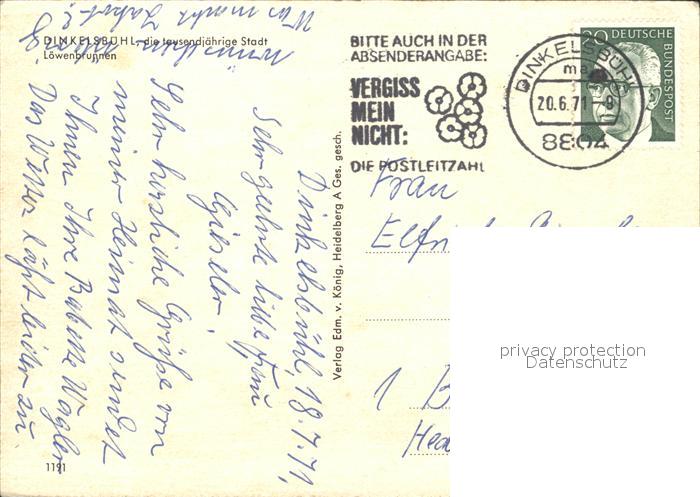 DINKELSBÜHL, die tausendjährige Stadt
Löwenbrunnen
BITTE AUCH IN DER
ABSENDERANGABE:
VERGISS
MEIN
NICHT:
DIE POSTLEITZAHL
DINKELSBÜHL
ma
20.6.71-9
8804
20 DEUTSCHE
BUNDESPOST
Dinkelsbühl, 18.7.71,
Sehr geehrte liebe Frau
Gissler,
Sehr herzliche Grüße von
meiner Heimat sendet
Ihnen Ihre Babette Wagler
Das Wetter läßt leider zu
Was macht
Verlag Edm. v. König, Heidelberg A Ges. gesch.
Frau
1 B
1191
privacy protection
Datenschutz